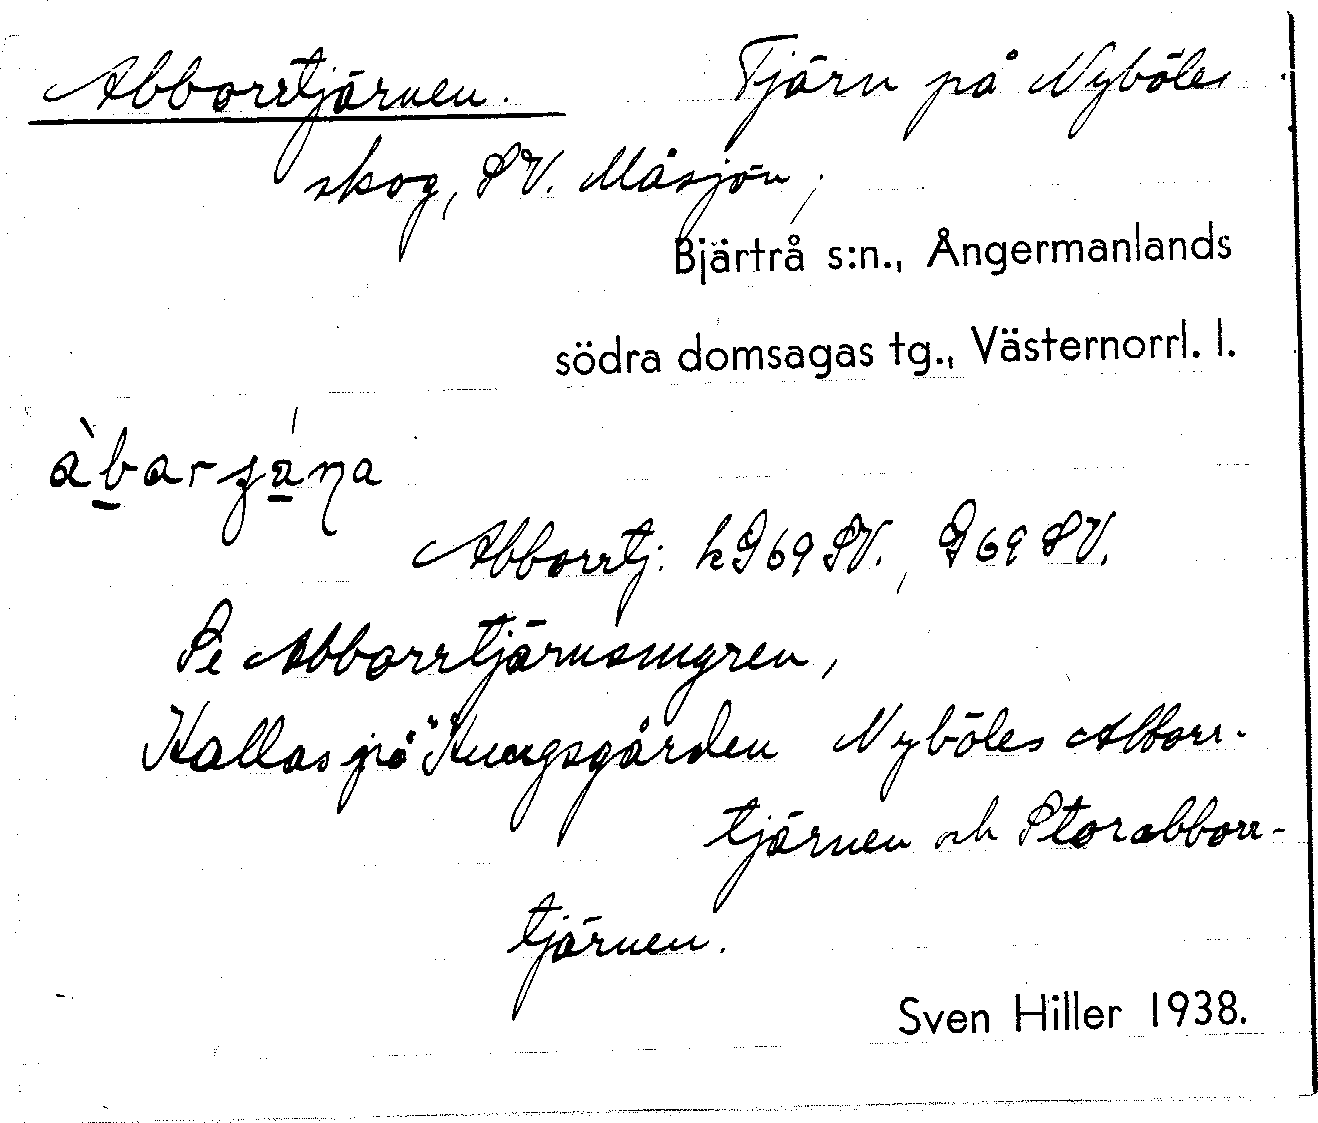 Abborrtjärnen. Tjärn på Nyböles
skog, SV. Måsjön,
Bjärtrå s:n., Ångermanlands
södra domsagas tg., Västernorrl. l.
Abborrtj. k G69 SV., G69 SV.
Se Abborrtjärnsmyren,
Kallas på Kungsgården Nyböles Abborr-
tjärnen och Storabborr-
tjärnen.
Sven Hiller 1938.